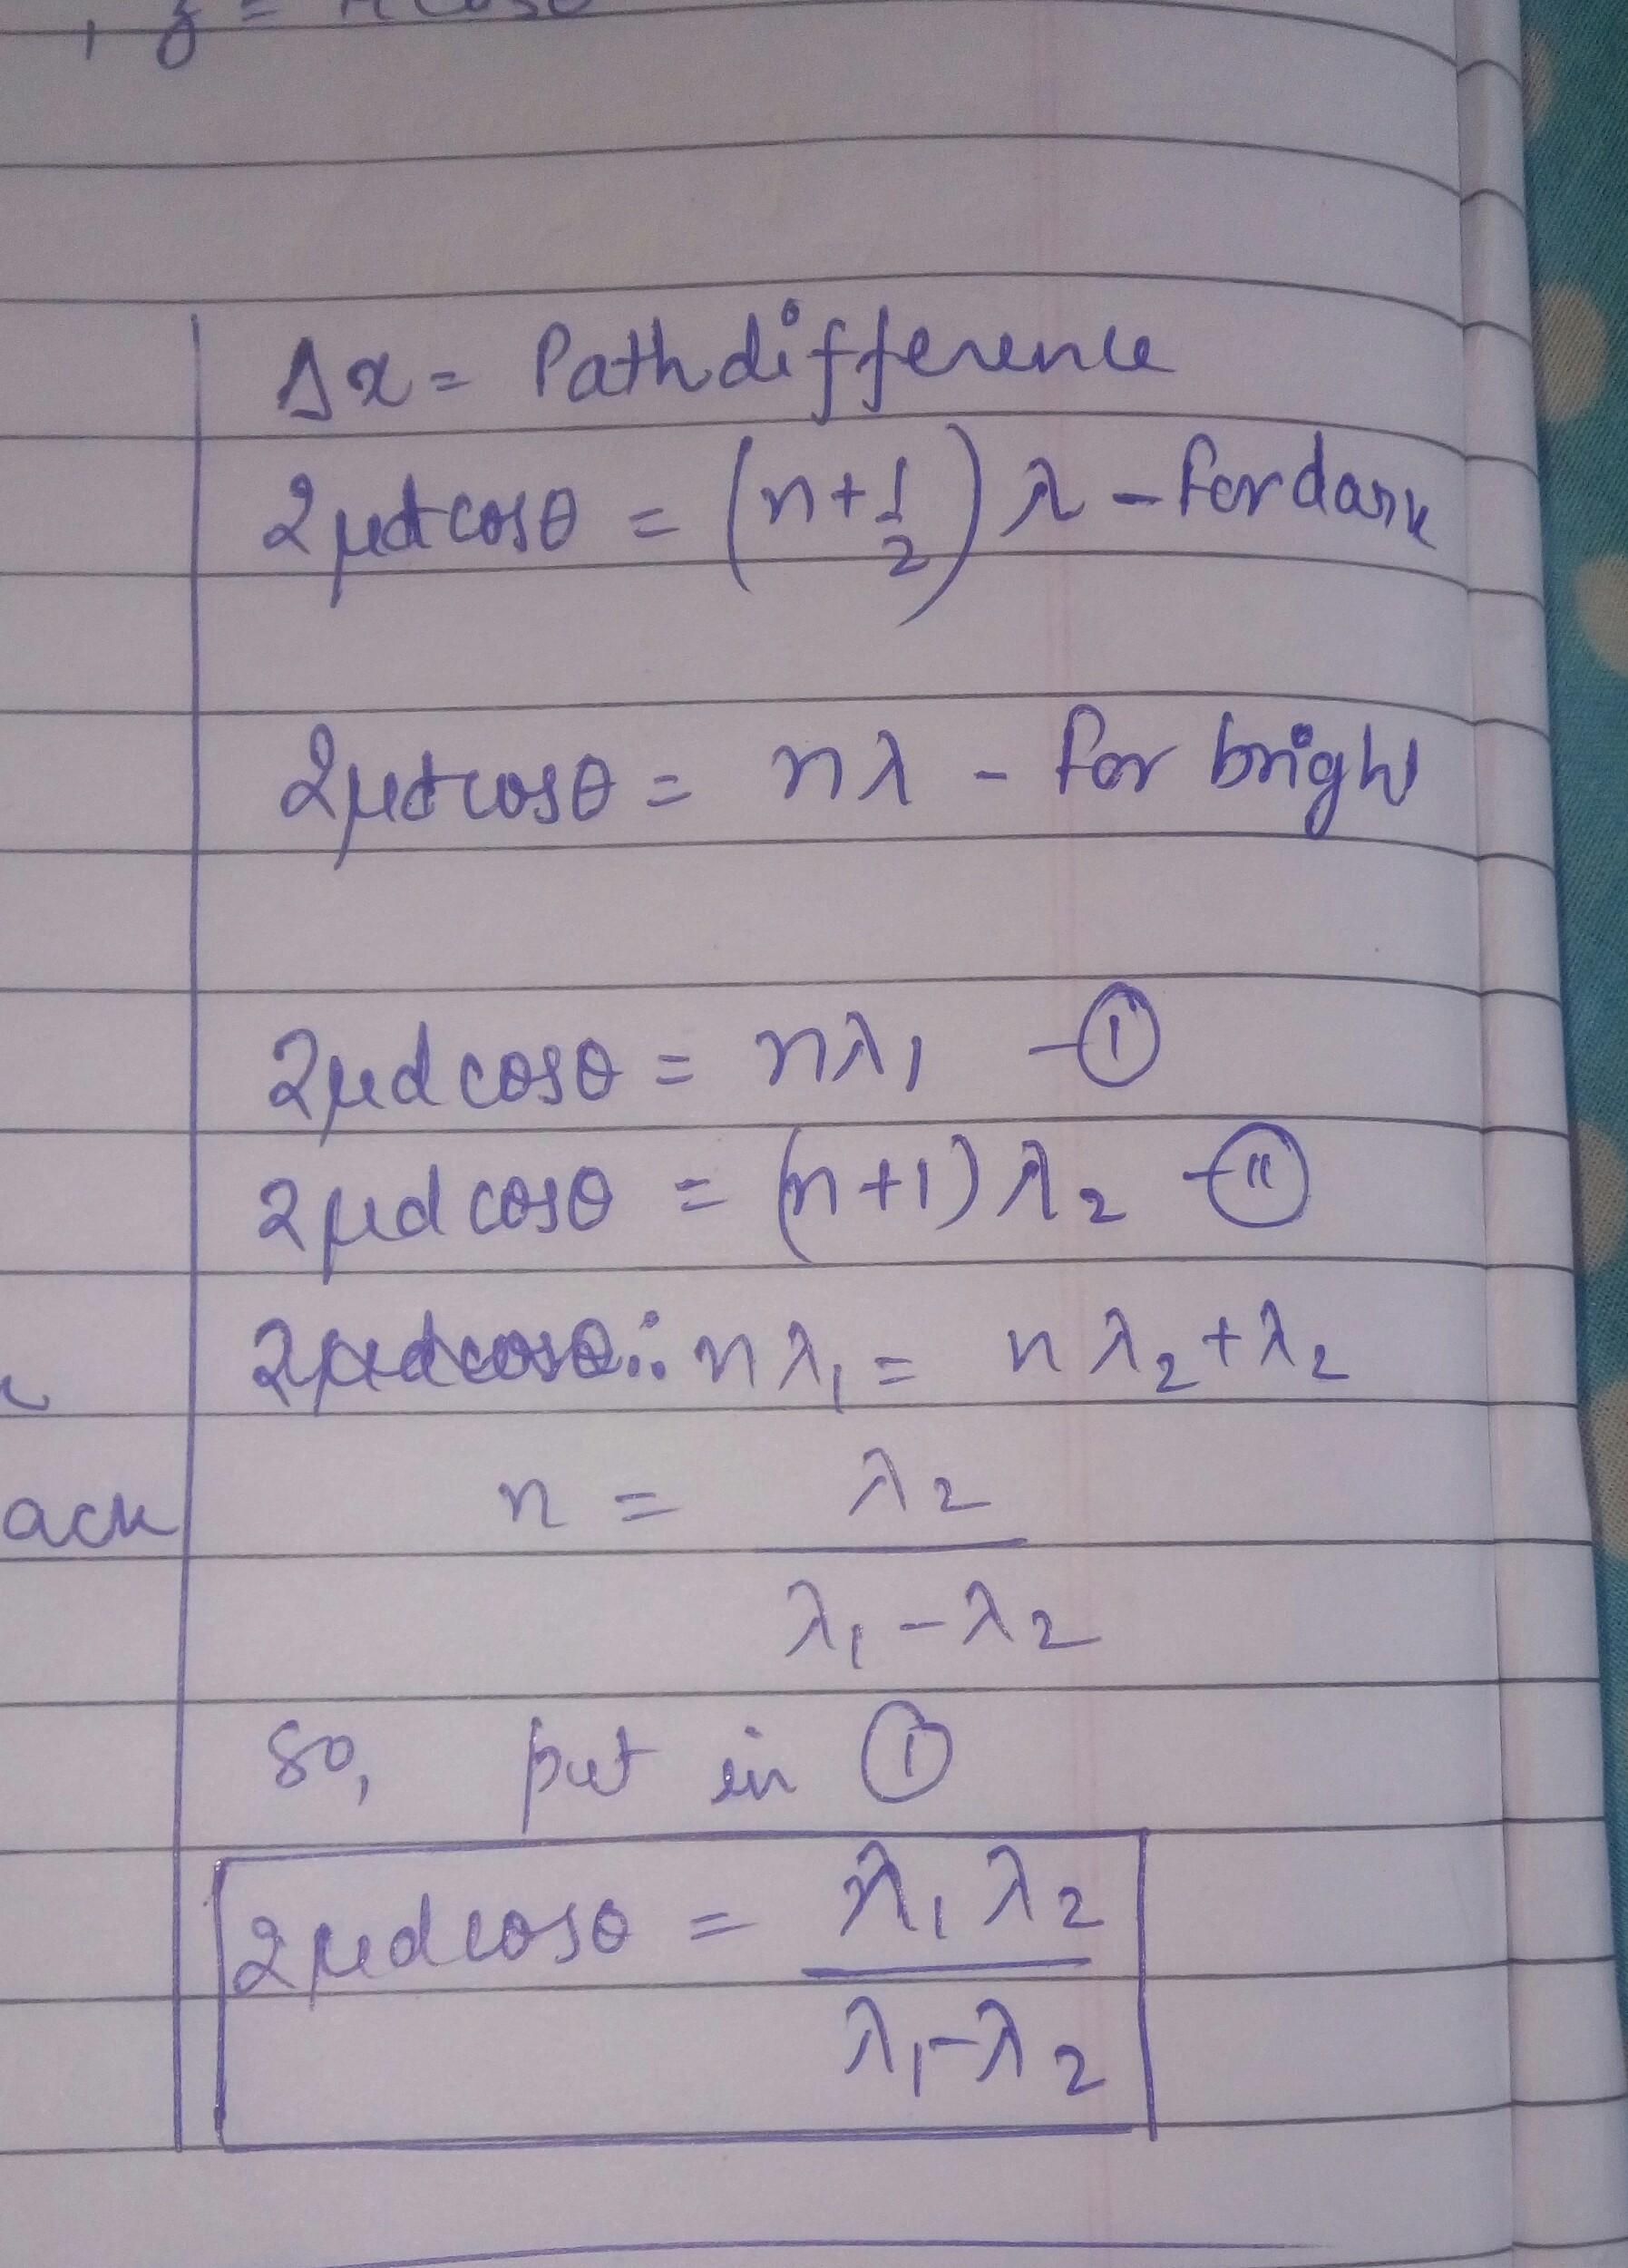 , z =
Δx = Path difference
2μdcosθ = (n+1/2)λ - for dark
2μdcosθ = nλ - for bright
2μd cosθ = nλ₁ -①
2μd cosθ = (n+1)λ₂ -⑪
2μdcosθ ∴ nλ₁ = nλ₂+λ₂
ack
n = λ₂
λ₁-λ₂
so, put in ①
2μdcosθ = λ₁λ₂
λ₁-λ₂